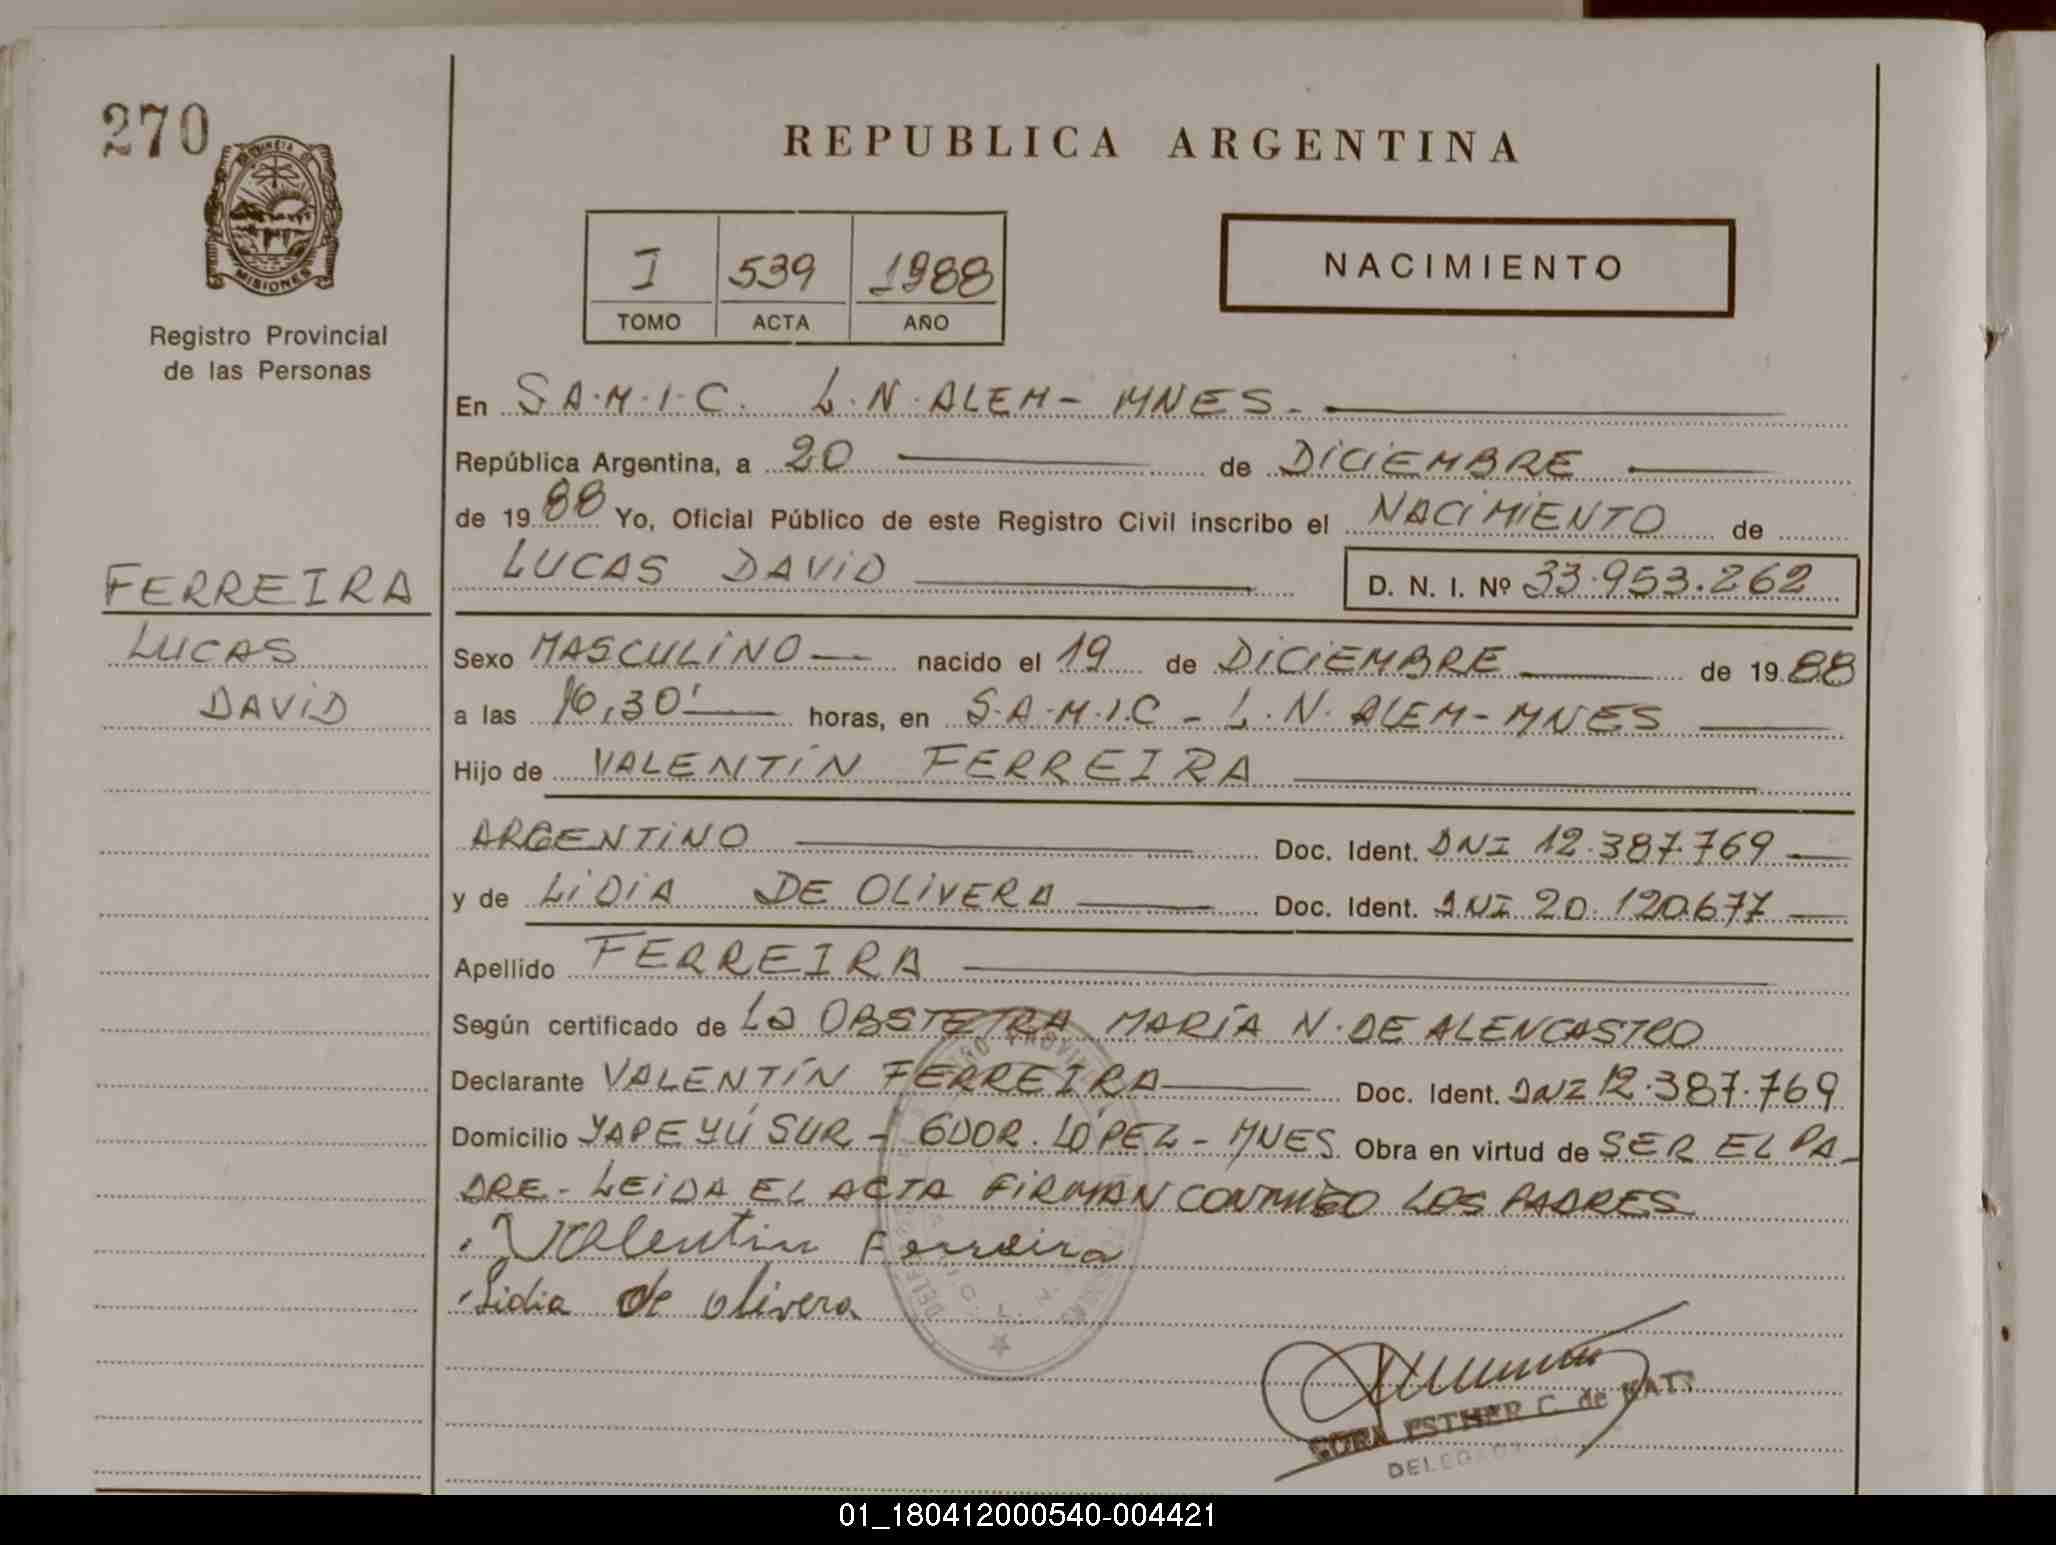 270
REPUBLICA ARGENTINA
PROVINCIA DE
MISIONES
Registro Provincial
de las Personas
I 539 1988
TOMO ACTA AÑO
NACIMIENTO
En S.A.M.I.C. L.N. ALEM - MNES.
República Argentina, a 20 de DICIEMBRE
de 1988 Yo, Oficial Público de este Registro Civil inscribo el NACIMIENTO de
LUCAS DAVID D. N. I. Nº 33.953.262
FERREIRA
LUCAS
DAVID
Sexo MASCULINO nacido el 19 de DICIEMBRE de 1988
a las 16,30' horas, en S.A.M.I.C - L.N. ALEM - MNES
Hijo de VALENTÍN FERREIRA
ARGENTINO Doc. Ident. DNI 12.387.769
y de LIDIA DE OLIVERA Doc. Ident. DNI 20.120.677
Apellido FERREIRA
Según certificado de LA OBSTETRA MARÍA N. DE ALENCASTRO
Declarante VALENTÍN FERREIRA Doc. Ident. DNI 12.387.769
Domicilio YAPEYÚ SUR - GDOR. LÓPEZ - MNES Obra en virtud de SER EL PA-
DRE - LEIDA EL ACTA FIRMAN CONMIGO LOS PADRES
Valentin Ferreira
Lidia de olivera
ESTHER C. de
01_180412000540-004421